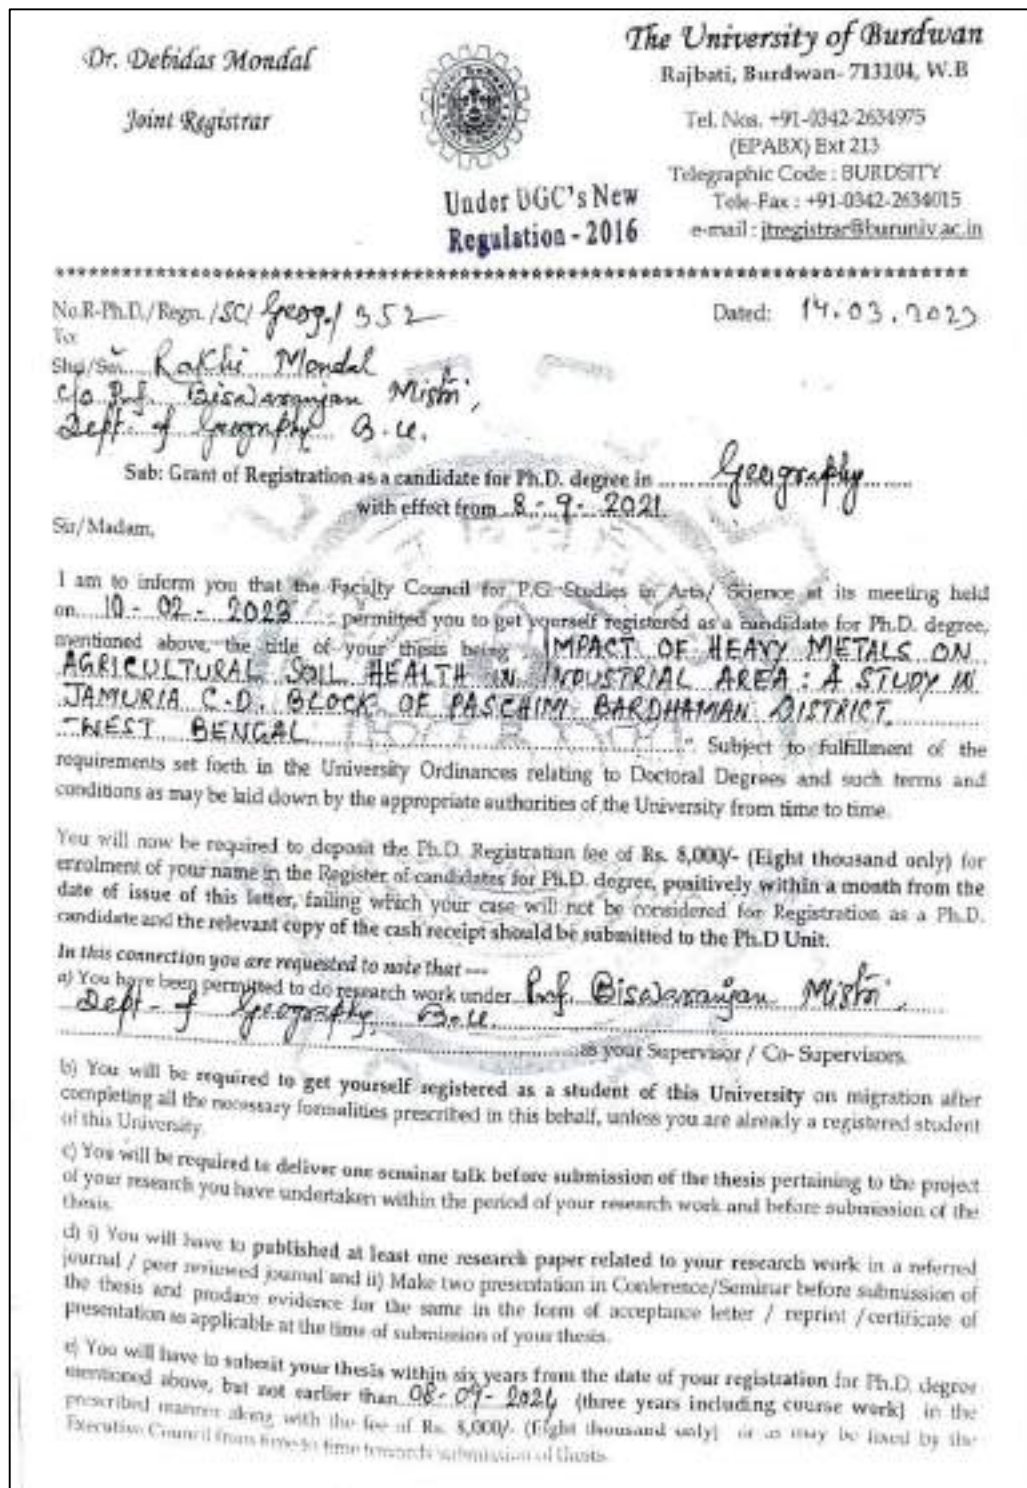 Dr. Debidas Mondal
Joint Registrar
The University of Burdwan
Rajbati, Burdwan- 713104, W.B
Tel. Nos. +91-0342-2634975
(EPABX) Ext 213
Telegraphic Code : BURDSITY
Tele-Fax : +91-0342-2634015
e-mail : jtregistrar@buruniv.ac.in
Under UGC's New
Regulation - 2016
No.R-Ph.D./Regn. /SC/ Geog./ 352
Dated: 14.03.2023
To
Rakhi Mondal
c/o Prof. Biswaranjan Mistri,
Dept. of Geography B.U.
Sub: Grant of Registration as a candidate for Ph.D. degree in ...... Geography
with effect from 8 - 9 - 2021
Sir/Madam,
I am to inform you that the Faculty Council for P.G. Studies in Arts/ Science at its meeting held
on 10 - 02 - 2023 permitted you to get yourself registered as a candidate for Ph.D. degree,
mentioned above, the title of your thesis being IMPACT OF HEAVY METALS ON
AGRICULTURAL SOIL HEALTH IN INDUSTRIAL AREA : A STUDY IN
JAMURIA C.D. BLOCK OF PASCHIM BARDHAMAN DISTRICT
WEST BENGAL " Subject to fulfillment of the
requirements set forth in the University Ordinances relating to Doctoral Degrees and such terms and
conditions as may be laid down by the appropriate authorities of the University from time to time.
You will now be required to deposit the Ph.D. Registration fee of Rs. 8,000/- (Eight thousand only) for
enrolment of your name in the Register of candidates for Ph.D. degree, positively within a month from the
date of issue of this letter, failing which your case will not be considered for Registration as a Ph.D.
candidate and the relevant copy of the cash receipt should be submitted to the Ph.D Unit.
In this connection you are requested to note that ---
a) You have been permitted to do research work under Prof. Biswaranjan Mistri,
Dept. of Geography, B.U.
as your Supervisor / Co- Supervisors.
b) You will be required to get yourself registered as a student of this University on migration after
completing all the necessary formalities prescribed in this behalf, unless you are already a registered student
of this University.
c) You will be required to deliver one seminar talk before submission of the thesis pertaining to the project
of your research you have undertaken within the period of your research work and before submission of the
thesis.
d) i) You will have to published at least one research paper related to your research work in a referred
journal / peer reviewed journal and ii) Make two presentation in Conference/Seminar before submission of
the thesis and produce evidence for the same in the form of acceptance letter / reprint /certificate of
presentation as applicable at the time of submission of your thesis.
e) You will have to submit your thesis within six years from the date of your registration for Ph.D. degree
mentioned above, but not earlier than 08- 09- 2024 (three years including course work) in the
prescribed manner along with the fee of Rs. 8,000/- (Eight thousand only) or as may be fixed by the
Executive Council from time to time towards submission of thesis.